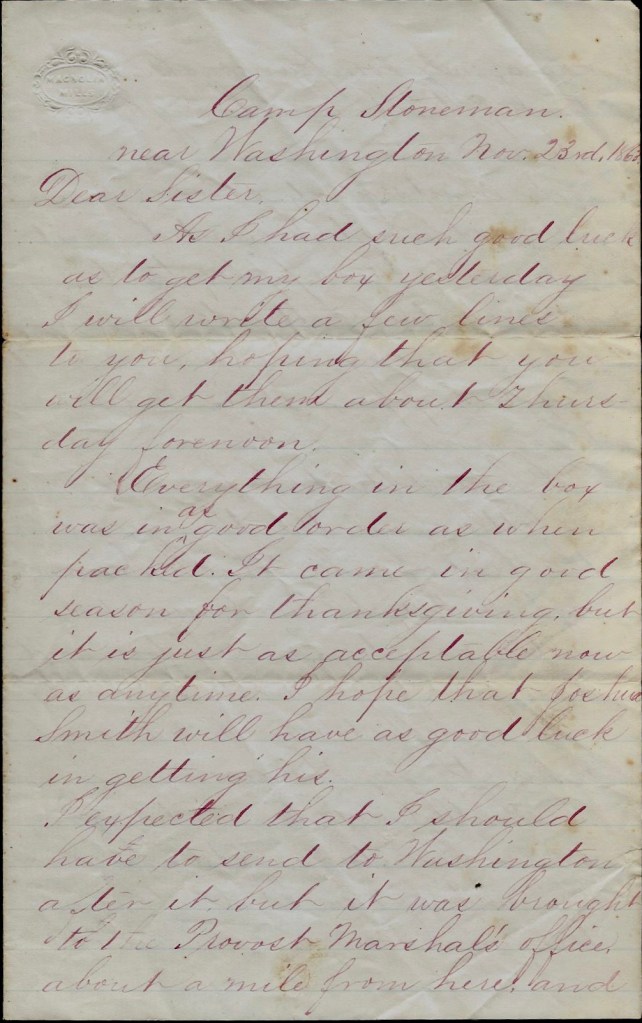 MAGNOLIA
MILLS
Camp Stoneman.
near Washington Nov. 23rd, 186
Dear Sister,
As I had such good luck
as to get my box yesterday
I will write a few lines
to you, hoping that you
will get them about Thurs-
day forenoon.
Everything in the box
was in as good order as when
packed. It came in good
season for thanksgiving, but
it is just as acceptable now
as anytime. I hope that Joshua
Smith will have as good luck
in getting his.
I expected that I should
have to send to Washington
after it but it was brought
to the Provost Marshal's office,
about a mile from here, and